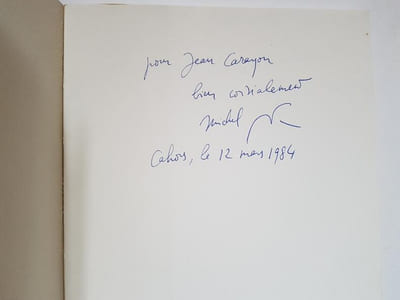 pour Jean Carayon
bien cordialement
Michel
Cahors, le 12 mars 1984